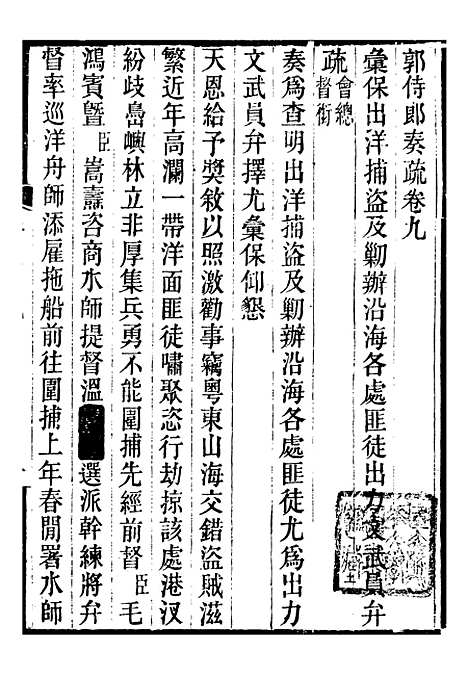 郭侍郎奏疏卷九
彙保出洋捕盜及勦辦沿海各處匪徒出力文武員弁
疏會總督銜
奏爲查明出洋捕盜及勦辦沿海各處匪徒尤爲出力
文武員弁擇尤彙保仰懇
天恩給予獎敘以照激勸事竊粵東山海交錯盜賊滋
繁近年高瀾一帶洋面匪徒嘯聚恣行劫掠該處港汊
紛歧島嶼林立非厚集兵勇不能圍捕先經前督臣毛
鴻賓暨臣嵩燾咨商水師提督溫選派幹練將弁
督率巡洋舟師添雇拖船前往圍捕上年春閒署水師